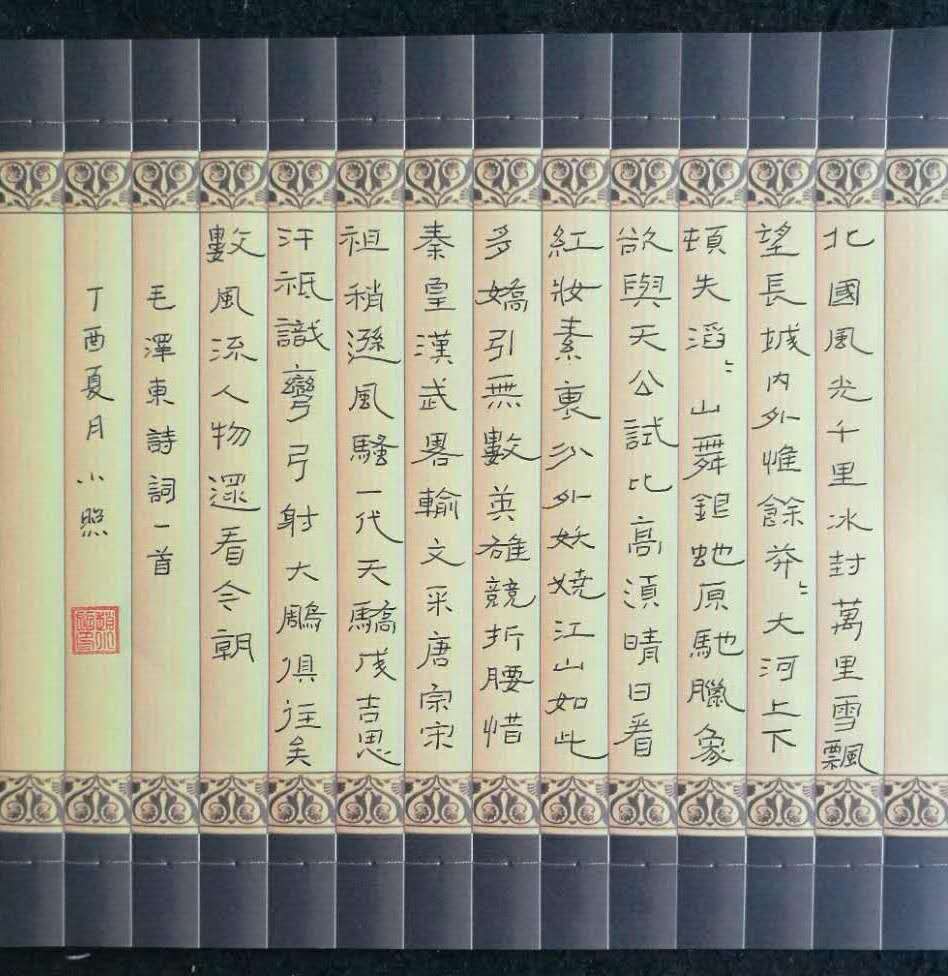 北國風光千里冰封萬里雪飄
望長城內外惟餘莽〻大河上下
頓失滔〻山舞銀蛇原馳臘象
欲與天公試比高須晴日看
紅妝素裹分外妖嬈江山如此
多嬌引無數英雄競折腰惜
秦皇漢武畧輸文采唐宗宋
祖稍遜風騷一代天驕成吉思
汗祗識彎弓射大鵰俱往矣
數風流人物還看今朝
毛澤東詩詞一首
丁酉夏月小照